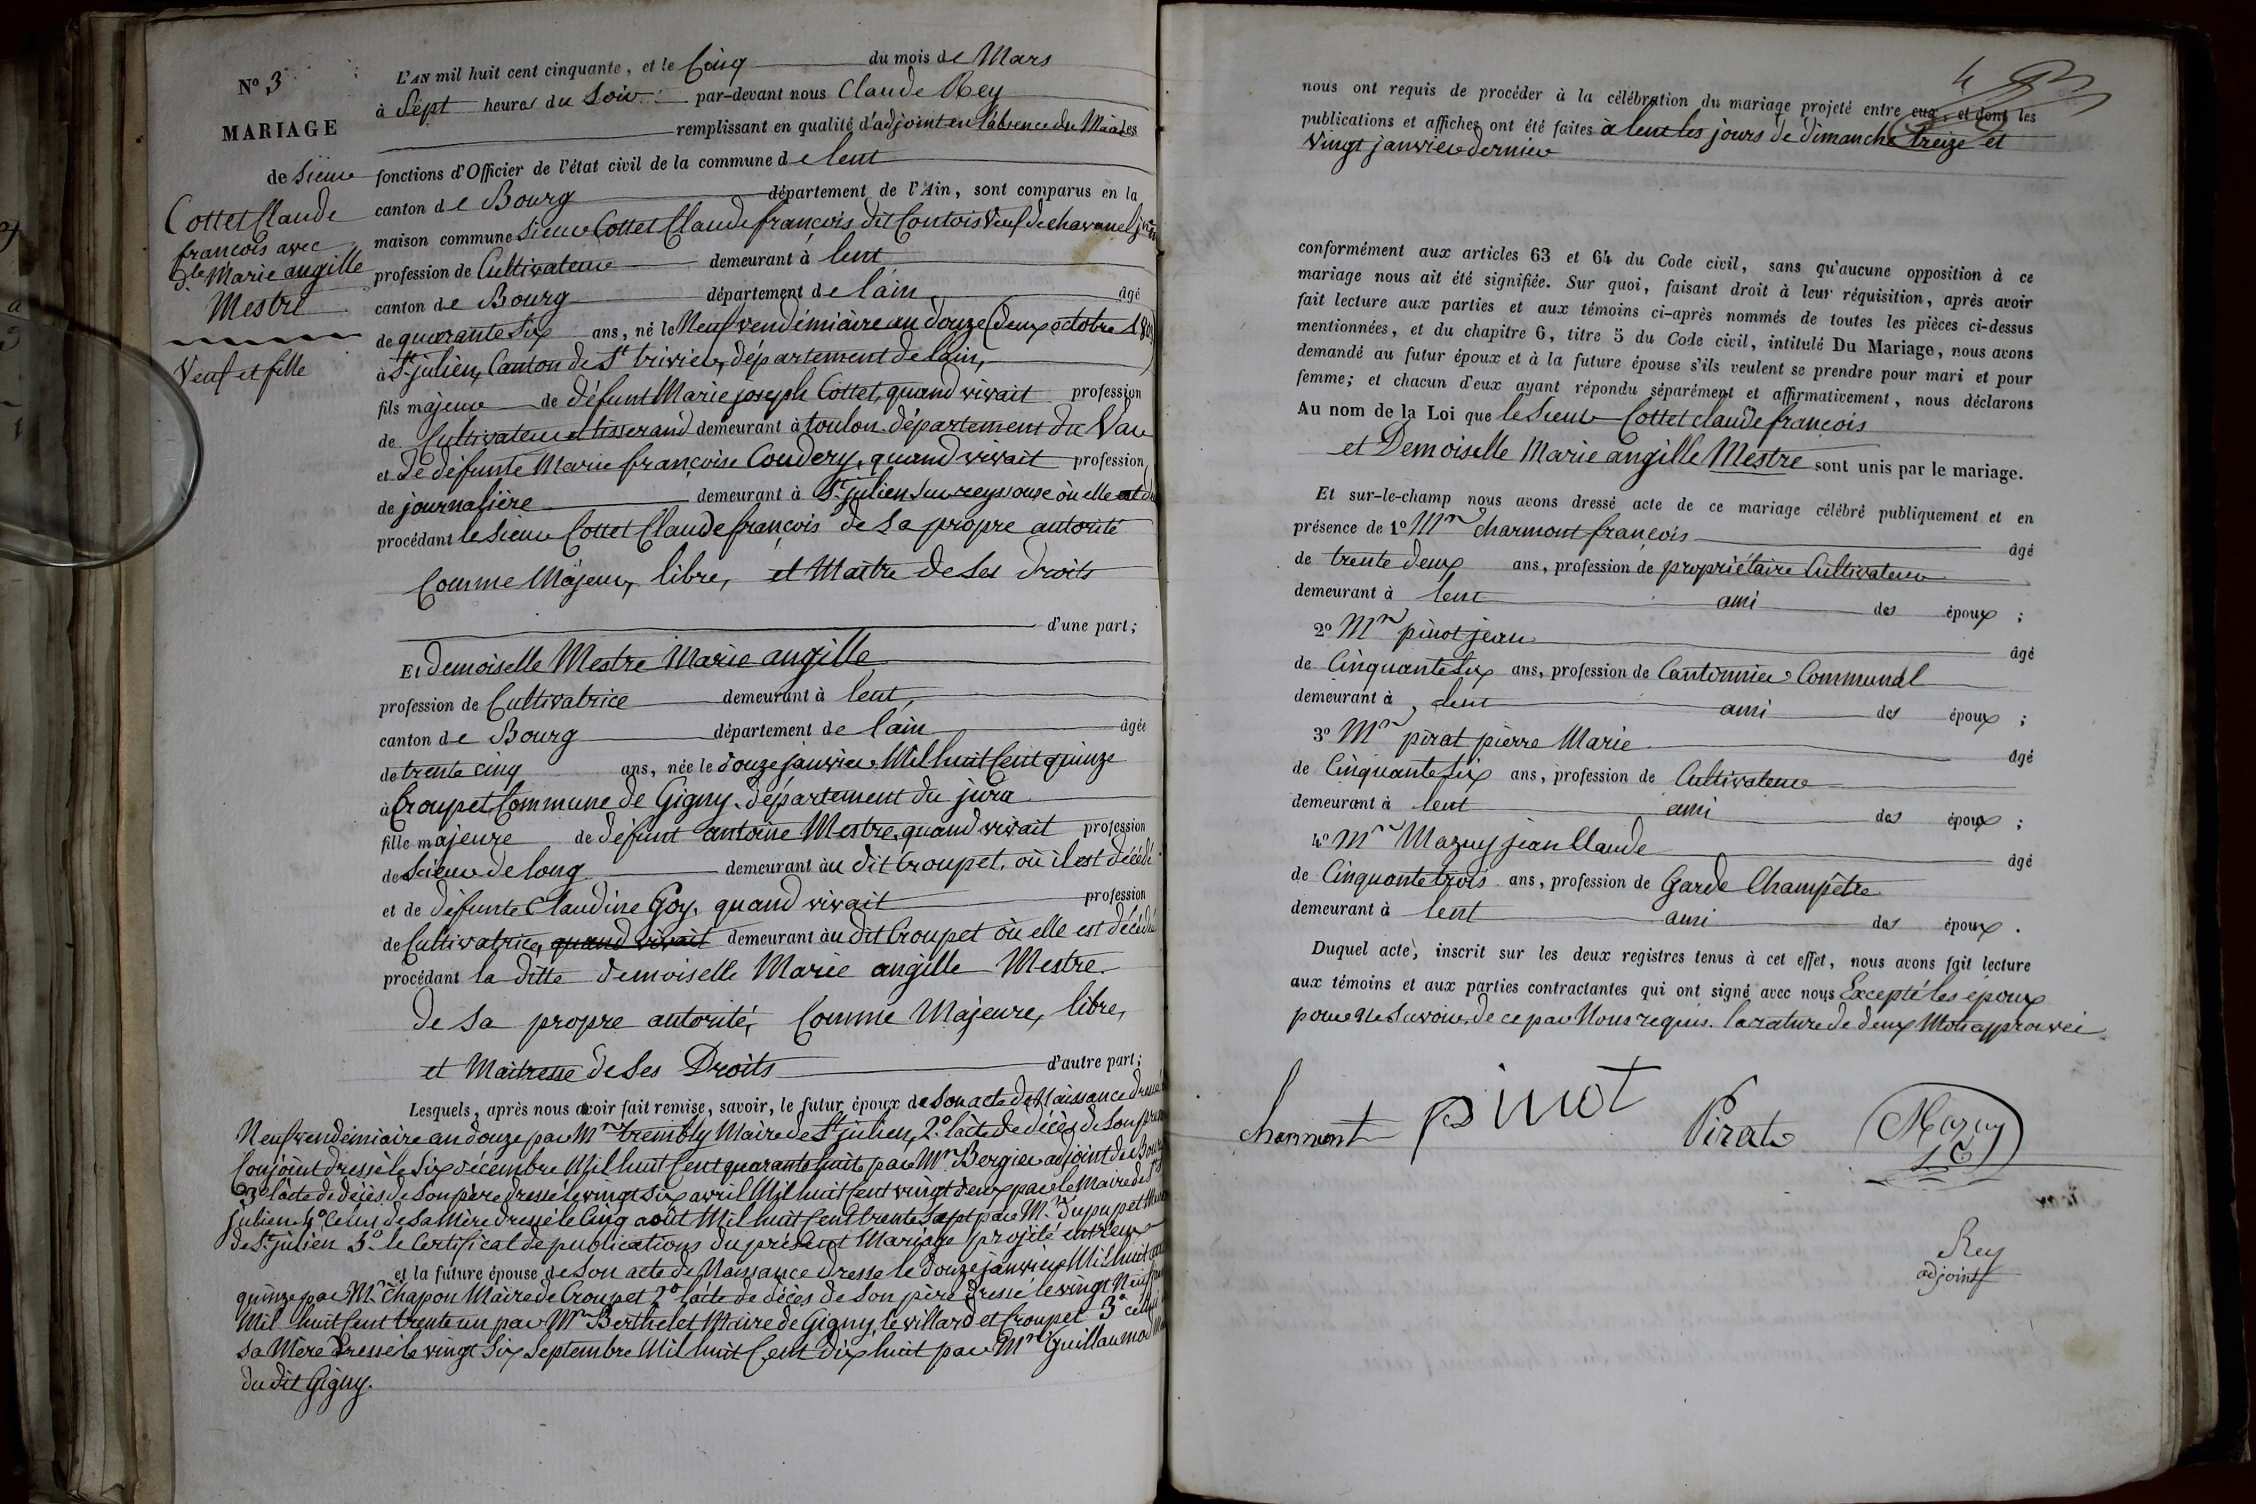 N° 3
MARIAGE
de Sieur
Cottet Claude
françois avec
Dlle Marie angille
Mestre
Veuf et fille
L'AN mil huit cent cinquante, et le Cinq du mois de Mars
à Sept heures du Soir par-devant nous Claude Rey
remplissant en qualité d'adjoint en l'absence du Maire les
fonctions d'Officier de l'état civil de la commune de lent
canton de Bourg département de l'Ain, sont comparus en la
maison commune Sieur Cottet Claude françois dit Contois Veuf de chavanel
profession de Cultivateur demeurant à lent
canton de Bourg département de l'ain âgé
de quarante Six ans, né le Neuf vendémiaire an douze (deux octobre 1803)
à St julien, Canton de St trivier, département de l'ain,
fils majeur de défunt Marie joseph Cottet, quand vivait profession
de Cultivateur et tisserand demeurant à toulon département du Var
et de défunte Marie françoise Coudery, quand vivait profession
de journalière demeurant à St julien Sur reyssouse où elle est
procédant le Sieur Cottet Claude françois de Sa propre autorité
Comme Majeur, libre, et Maître de Ses droits
d'une part;
Et demoiselle Mestre Marie angille
profession de Cultivatrice demeurant à lent,
canton de Bourg département de l'ain âgée
de trente cinq ans, née le douze janvier Mil huit Cent quinze
à Croupet Commune de Gigny, département du jura
fille majeure de défunt antoine Mestre, quand vivait profession
de Scieur de long demeurant au dit Croupet, où il est décédé
et de défunte Claudine Goy, quand vivait profession
de Cultivatrice, quand vivait demeurant au dit Croupet où elle est décédé
procédant la ditte demoiselle Marie angille Mestre
de Sa propre autorité, Comme Majeure, libre,
et Maitresse de Ses Droits d'autre part;
Lesquels, après nous avoir fait remise, savoir, le futur époux de Son acte de Naissance dressé
Neuf vendémiaire an douze par Mr trembly Maire de St julien, 2° l'acte de décès de Son
Conjoint dressé le Six décembre Mil huit Cent quarante huit par Mr Bergier adjoint de Bourg
3° l'acte de décès de Son père dressé le vingt Six avril Mil huit Cent vingt deux par le Maire de St
julien 4° Celui de Sa Mère dressé le Cinq août Mil huit Cent trente Sept par Mr dupupet
de St julien 5° le Certificat de publications du présent Mariage projeté entr'eux
et la future épouse de Son acte de Naissance dressé le douze janvier Mil huit
quinze par Mr Chapon Maire de Croupet 2° l'acte de décès de Son père dressé le vingt Neuf
Mil huit Cent trente un par Mr Berthelet Maire de Gigny, le villard et Croupet 3° celui
Sa Mère dressé le vingt Six Septembre Mil huit Cent dix huit par Mr Guillaumod
du dit Gigny.
4
nous ont requis de procéder à la célébration du mariage projeté entre eux, et dont les
publications et affiches ont été faites à lent les jours de dimanche treize et
vingt janvier dernier
conformément aux articles 63 et 64 du Code civil, sans qu'aucune opposition à ce
mariage nous ait été signifiée. Sur quoi, faisant droit à leur réquisition, après avoir
fait lecture aux parties et aux témoins ci-après nommés de toutes les pièces ci-dessus
mentionnées, et du chapitre 6, titre 5 du Code civil, intitulé Du Mariage, nous avons
demandé au futur époux et à la future épouse s'ils veulent se prendre pour mari et pour
femme; et chacun d'eux ayant répondu séparément et affirmativement, nous déclarons
Au nom de la Loi que le Sieur Cottet Claude françois
et Demoiselle Marie angille Mestre sont unis par le mariage.
Et sur-le-champ nous avons dressé acte de ce mariage célébré publiquement et en
présence de 1° Mr charmont françois âgé
de trente deux ans, profession de propriétaire Cultivateur
demeurant à lent ami des époux ;
2° Mr pinot jean âgé
de Cinquante Six ans, profession de Cantonnier Communal
demeurant à lent ami des époux ;
3° Mr pirat pierre Marie âgé
de Cinquante Six ans, profession de Cultivateur
demeurant à lent ami des époux ;
4° Mr Mazuy jean Claude âgé
de Cinquante trois ans, profession de Garde Champêtre
demeurant à lent ami des époux .
Duquel acte, inscrit sur les deux registres tenus à cet effet, nous avons fait lecture
aux témoins et aux parties contractantes qui ont signé avec nous Excepté les époux
pour Ne Savoir, de ce par Nous requis. la rature de deux Mots approuvée
Charmont pinot Pirat Mazuy
Rey
adjoint